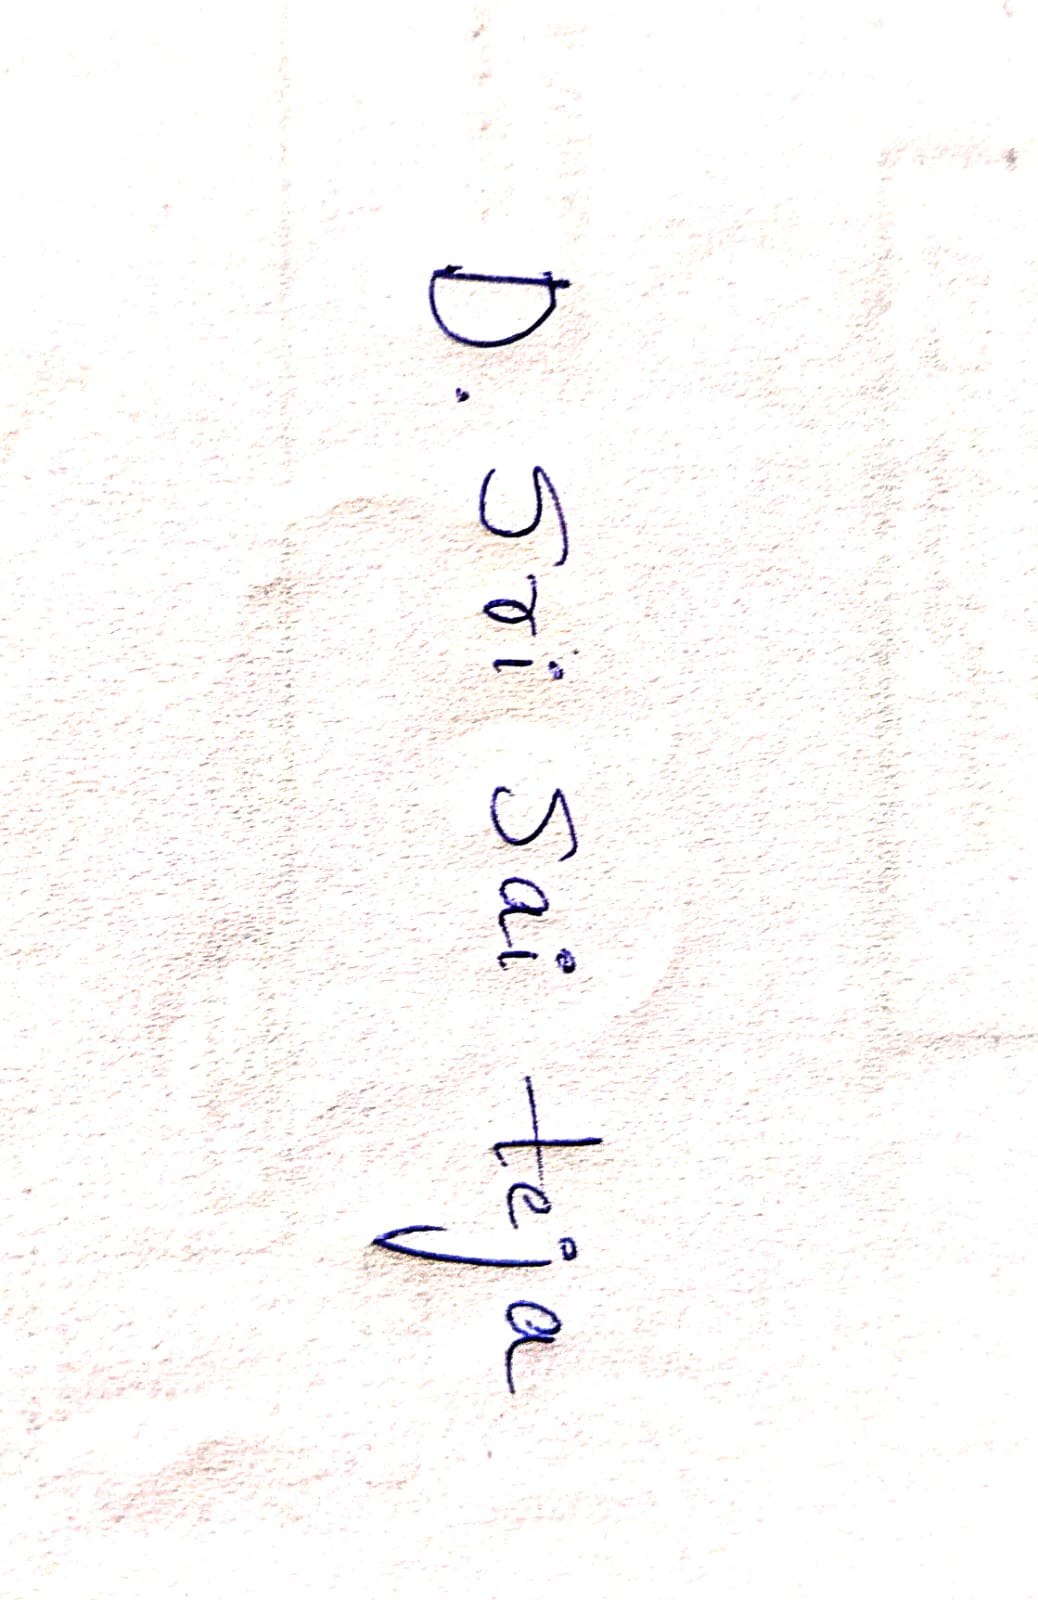 D. Sri Sai teja